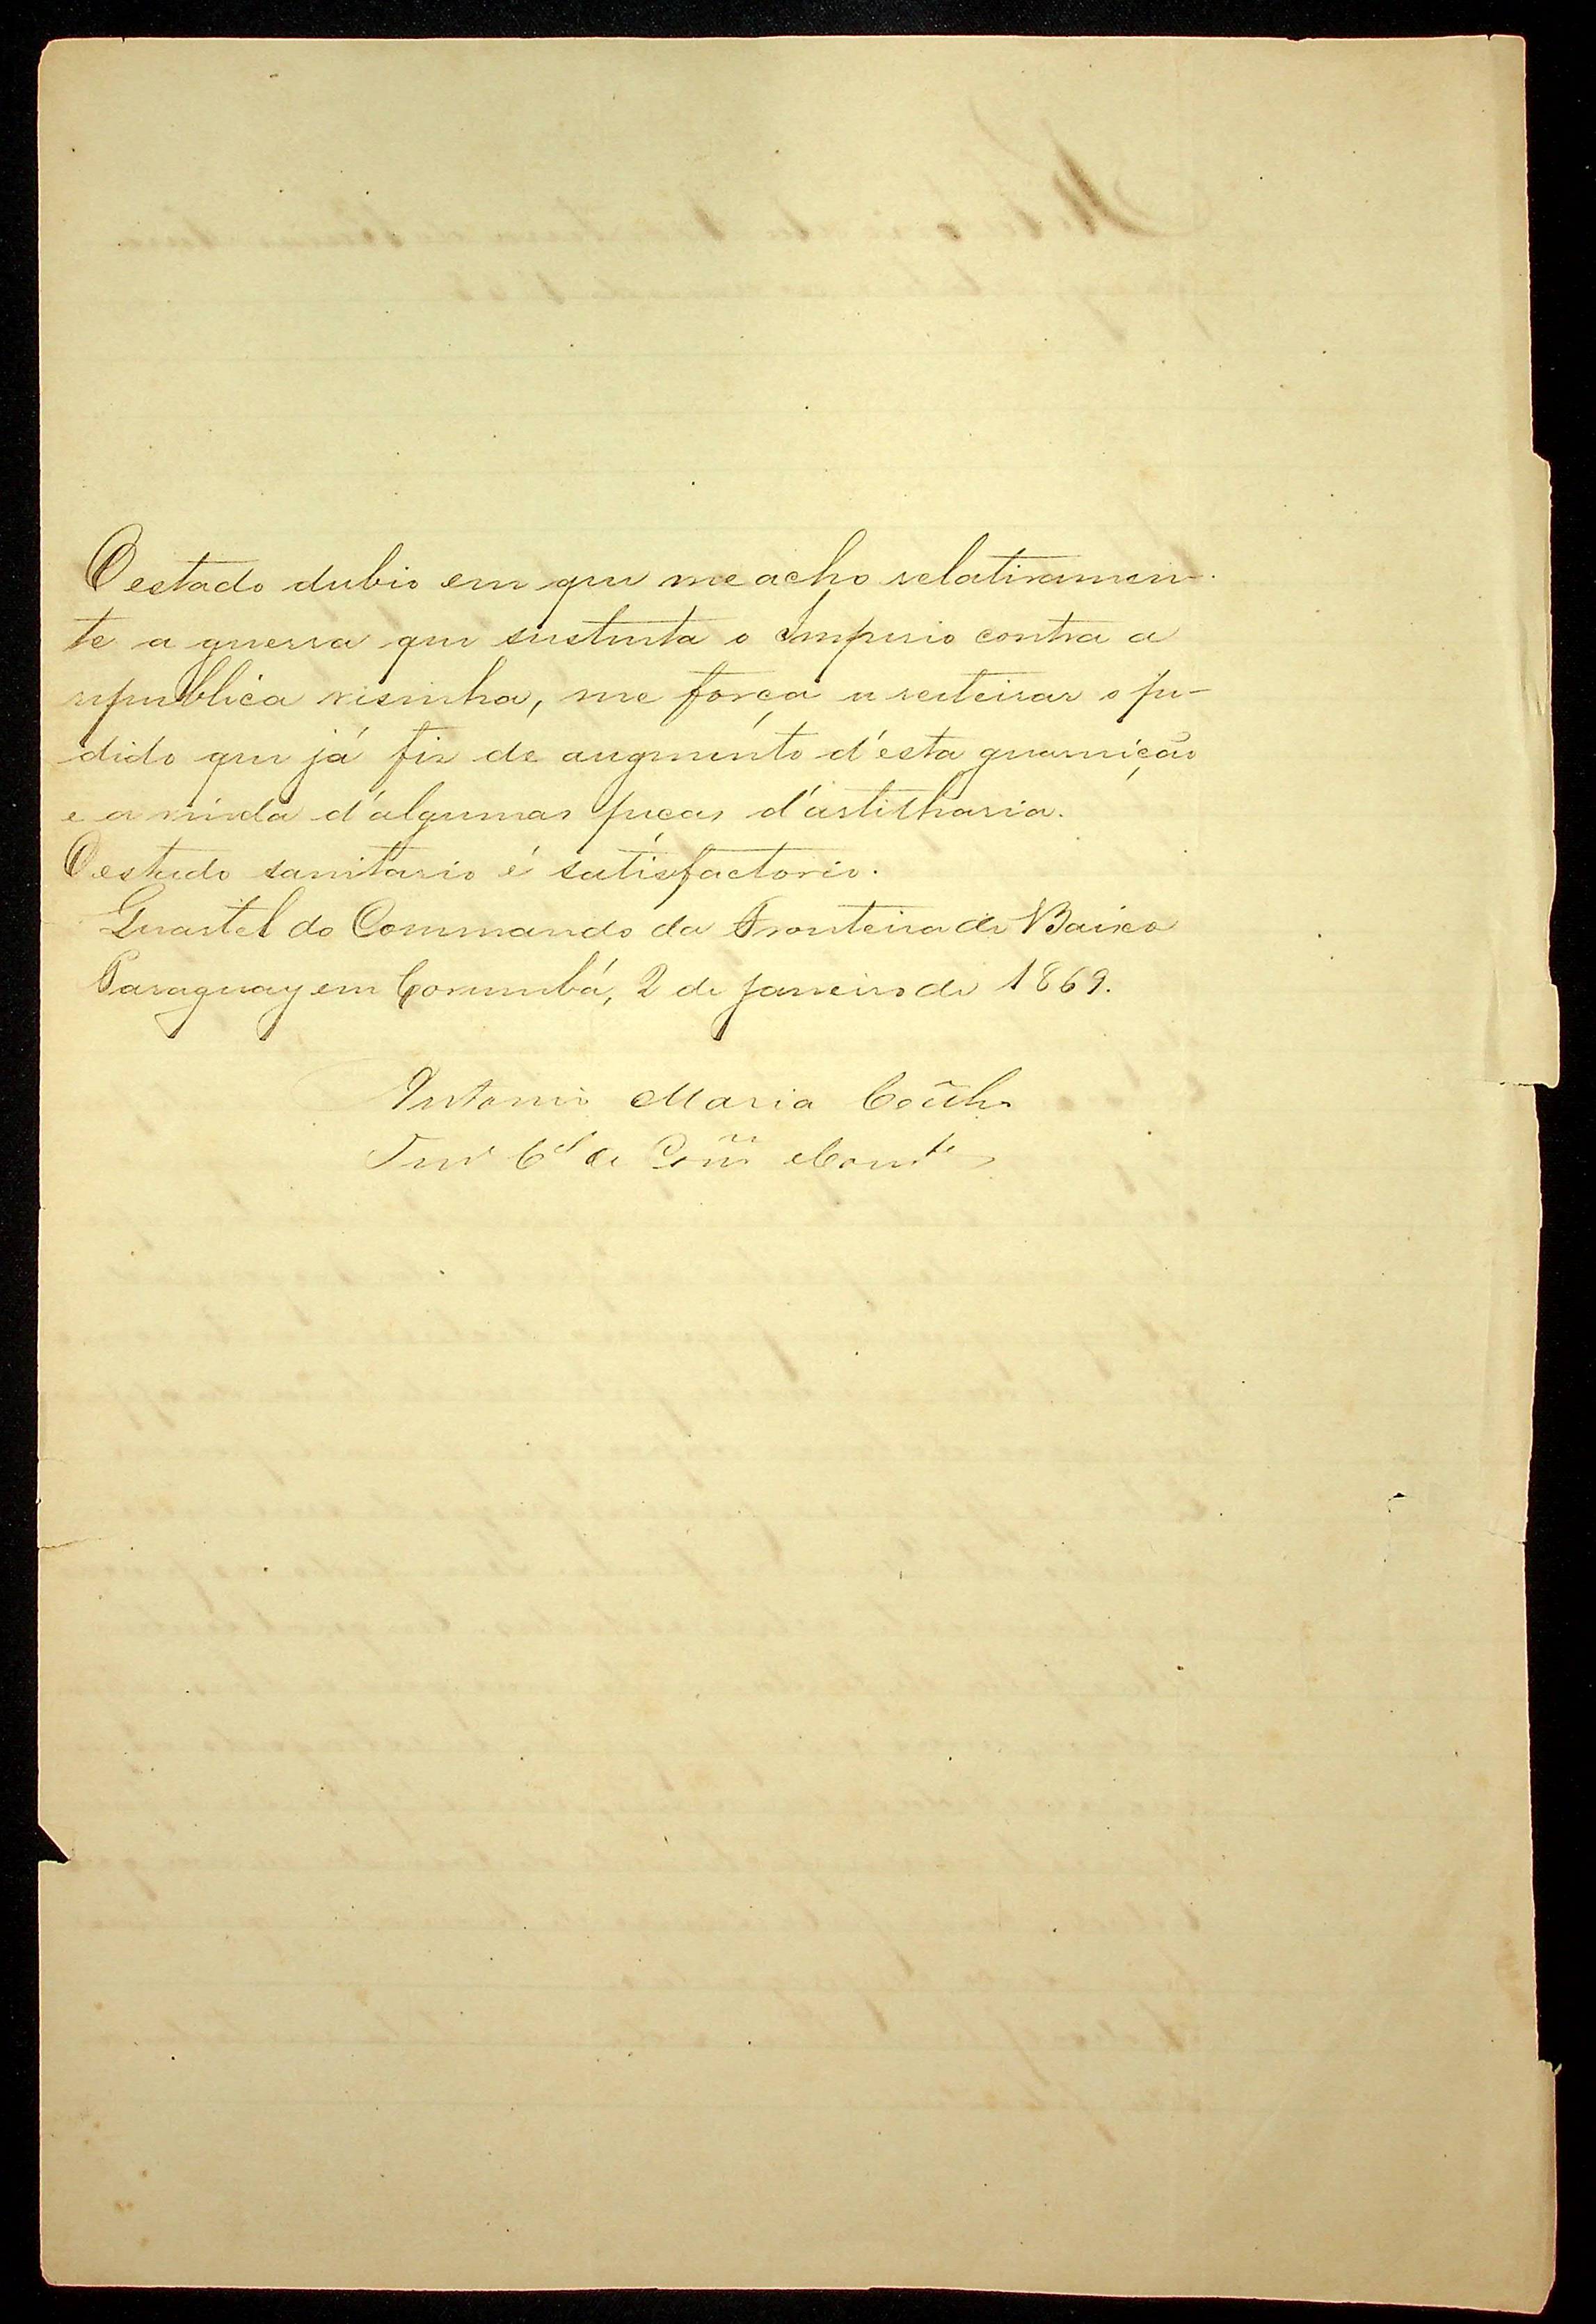 O estado dubio em que me acho relativamen-
te a guerra que sustenta o Imperio contra a
republica visinha, me força a reiterar o pe-
dido que já fiz de augmento d'esta guarnição
e a vinda d'algumas peças d'artilharia.
O estado sanitario é satisfactorio.
Quartel do Commando da Fronteira do Baixo
Paraguay em Corumbá, 2 de Janeiro de 1869.
Antonio Maria Coelho
Tenᵉ Cᵉˡ de Comᵐ Comᵗᵉ